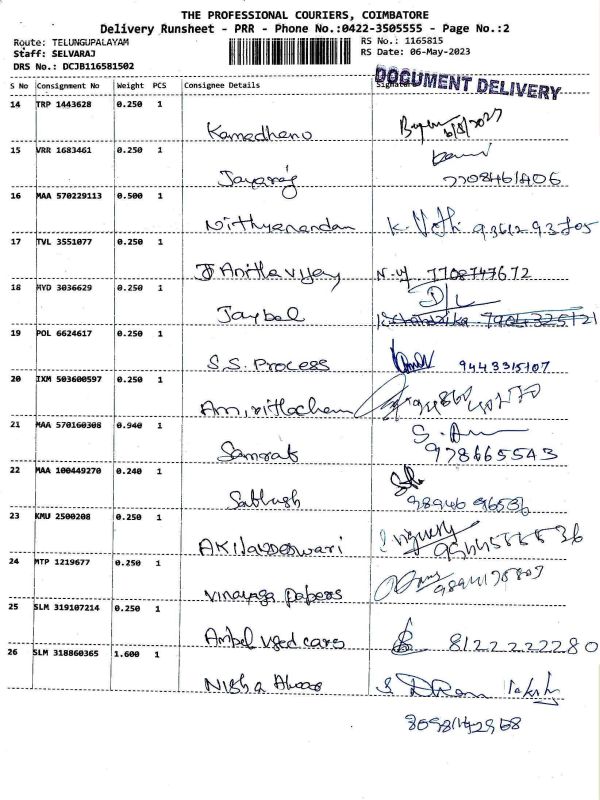 THE PROFESSIONAL COURIERS, COIMBATORE
Delivery Runsheet - PRR - Phone No.:0422-3505555 - Page No.:2
Route: TELUNGUPALAYAM RS No.: 1165815
Staff: SELVARAJ RS Date: 06-May-2023
DRS No.: DCJB116581502
DOCUMENT DELIVERY
S No Consignment No Weight PCS Consignee Details
14 TRP 1443628 0.250 1
Kamadhenu
15 VRR 1683461 0.250 1
Jayaraj 7708461406
16 MAA 570229113 0.500 1
Nithyanandan
17 TVL 3551077 0.250 1
Anitha vijay 7708747672
18 HYD 3036629 0.250 1
Jaybal
19 POL 6624617 0.250 1
S.S. Process 9443315107
20 IXM 503600597 0.250 1
21 MAA 570160308 0.940 1
Samrat 978665543
22 MAA 100449270 0.240 1
Sathish
23 KMU 2500208 0.250 1
Akilandeswari
24 MTP 1219677 0.250 1
Vinayaga papers
25 SLM 319107214 0.250 1
Ambel used cars 8122222280
26 SLM 318860365 1.600 1
Nisha